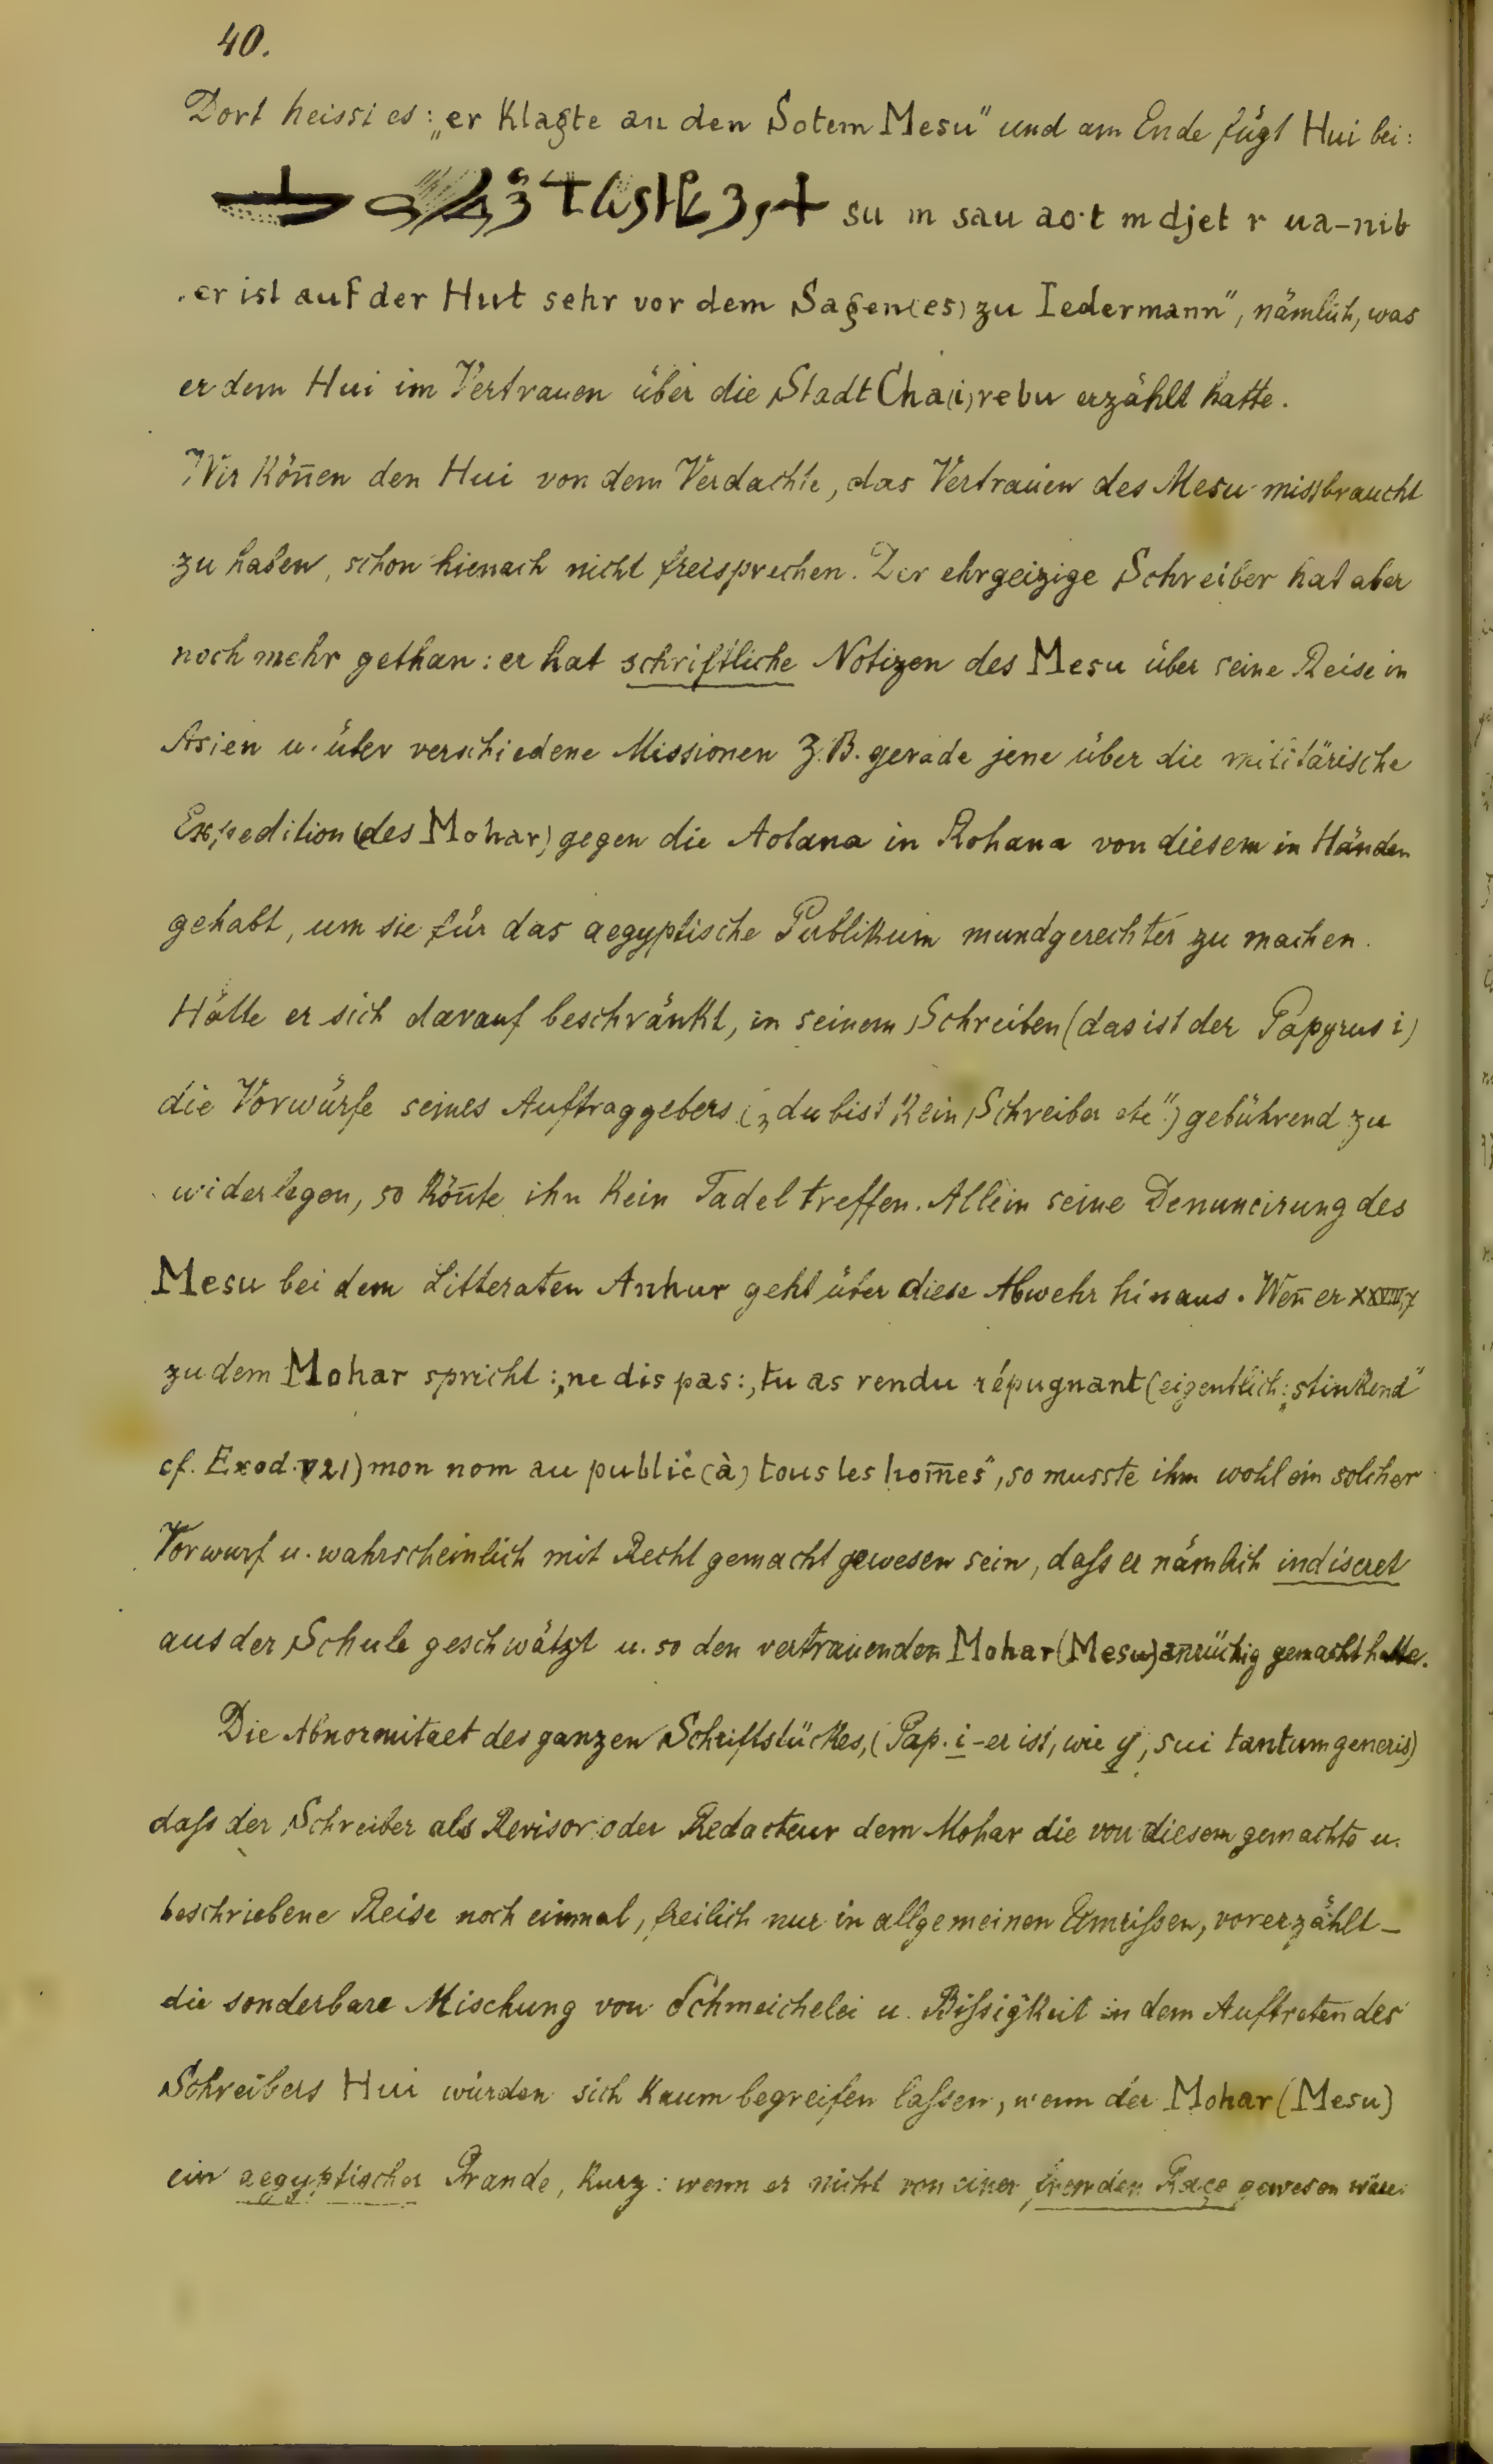 40.
Dort heisst es: „er Klagte an den Sotem Mesu" und am Ende fügt Hui bei:
su m sau ao·t m djet r ua-nib
„er ist auf der Hut sehr vor dem Sagen(es) zu Iedermann", nämlich, was
er dem Hui im Vertrauen über die Stadt Cha(i)rebu erzählt hatte.
Wir Kön̄en den Hui von dem Verdachte, das Vertrauen des Mesu missbraucht
zu haben, schon hienach nicht freisprechen. Der ehrgeizige Schreiber hat aber
noch mehr gethan: er hat schriftliche Notizen des Mesu über seine Reise in
Asien u. über verschiedene Missionen z.B. gerade jene über die militärische
Expedition (des Mohar) gegen die Aolana in Rohana von diesem in Händen
gehabt, um sie für das aegyptische Publikum mundgerechter zu machen.
Hätte er sich darauf beschränkt, in seinem Schreiben (das ist der Papyrus i)
die Vorwürfe seines Auftraggebers („du bist Kein Schreiber etc") gebührend zu
widerlegen, so Kön̄te ihn Kein Tadel treffen. Allein seine Denuncirung des
Mesu bei dem Litteraten Anhur geht über diese Abwehr hinaus. Wen̄ er XXVIII,7
zu dem Mohar spricht: „ne dis pas: ‚tu as rendu répugnant (eigentlich: „stinkend"
cf. Exod. V 21) mon nom au public (à) tous les hom̄es", so musste ihm wohl ein solcher
Vorwurf u. wahrscheinlich mit Recht gemacht gewesen sein, daſs er nämlich indiscret
aus der Schule geschwätzt u. so den vertrauenden Mohar (Mesu) anrüchig gemacht hatte.
Die Abnormitaet des ganzen Schriftstückes, (Pap. i - er ist, wie y, sui tantum generis)
daſs der Schreiber als Revisor oder Redacteur dem Mohar die von diesem gemachte u.
beschriebene Reise noch einmal, freilich nur in allgemeinen Umriſsen, vorerzählt –
die sonderbare Mischung von Schmeichelei u. Biſsigkeit in dem Auftreten des
Schreibers Hui würden sich Kaum begreifen laſsen, wenn der Mohar (Mesu)
ein aegyptischer Grande, Kurz: wenn er nicht von einer fremden Race gewesen wäre.